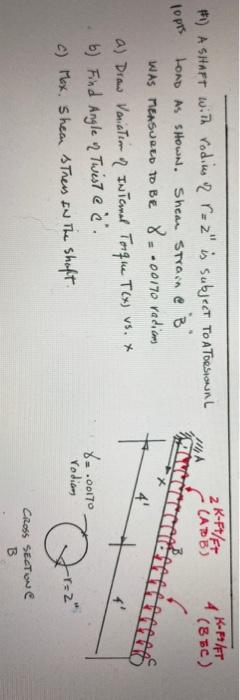 #1) A SHAFT with radius of r = 2" is subject TO A TORSIONAL
10 pts. LOAD AS SHOWN. Shear Strain @ "B"
WAS MEASURED TO BE γ = .00170 radians
a) Draw Variation of Internal Torque T(x) vs. x
b) Find Angle of Twist @ "C".
c) Max. Shear Stress IN The shaft.
2 K-Ft/Ft
(A TO B)
4 K-Ft/FT
(B TO C)
A
B
C
x
4'
4'
γ = .00170
radians
r = 2"
CROSS SECTION @
B